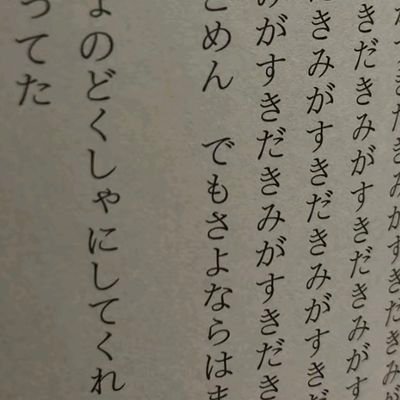 きだきみがすきだきみが
きだきみがすきだきみがす
だきみがすきだきみがすきだ
みがすきだきみがすきだき
ごめん　でもさよならはま
のどくしゃにしてくれ
ってた